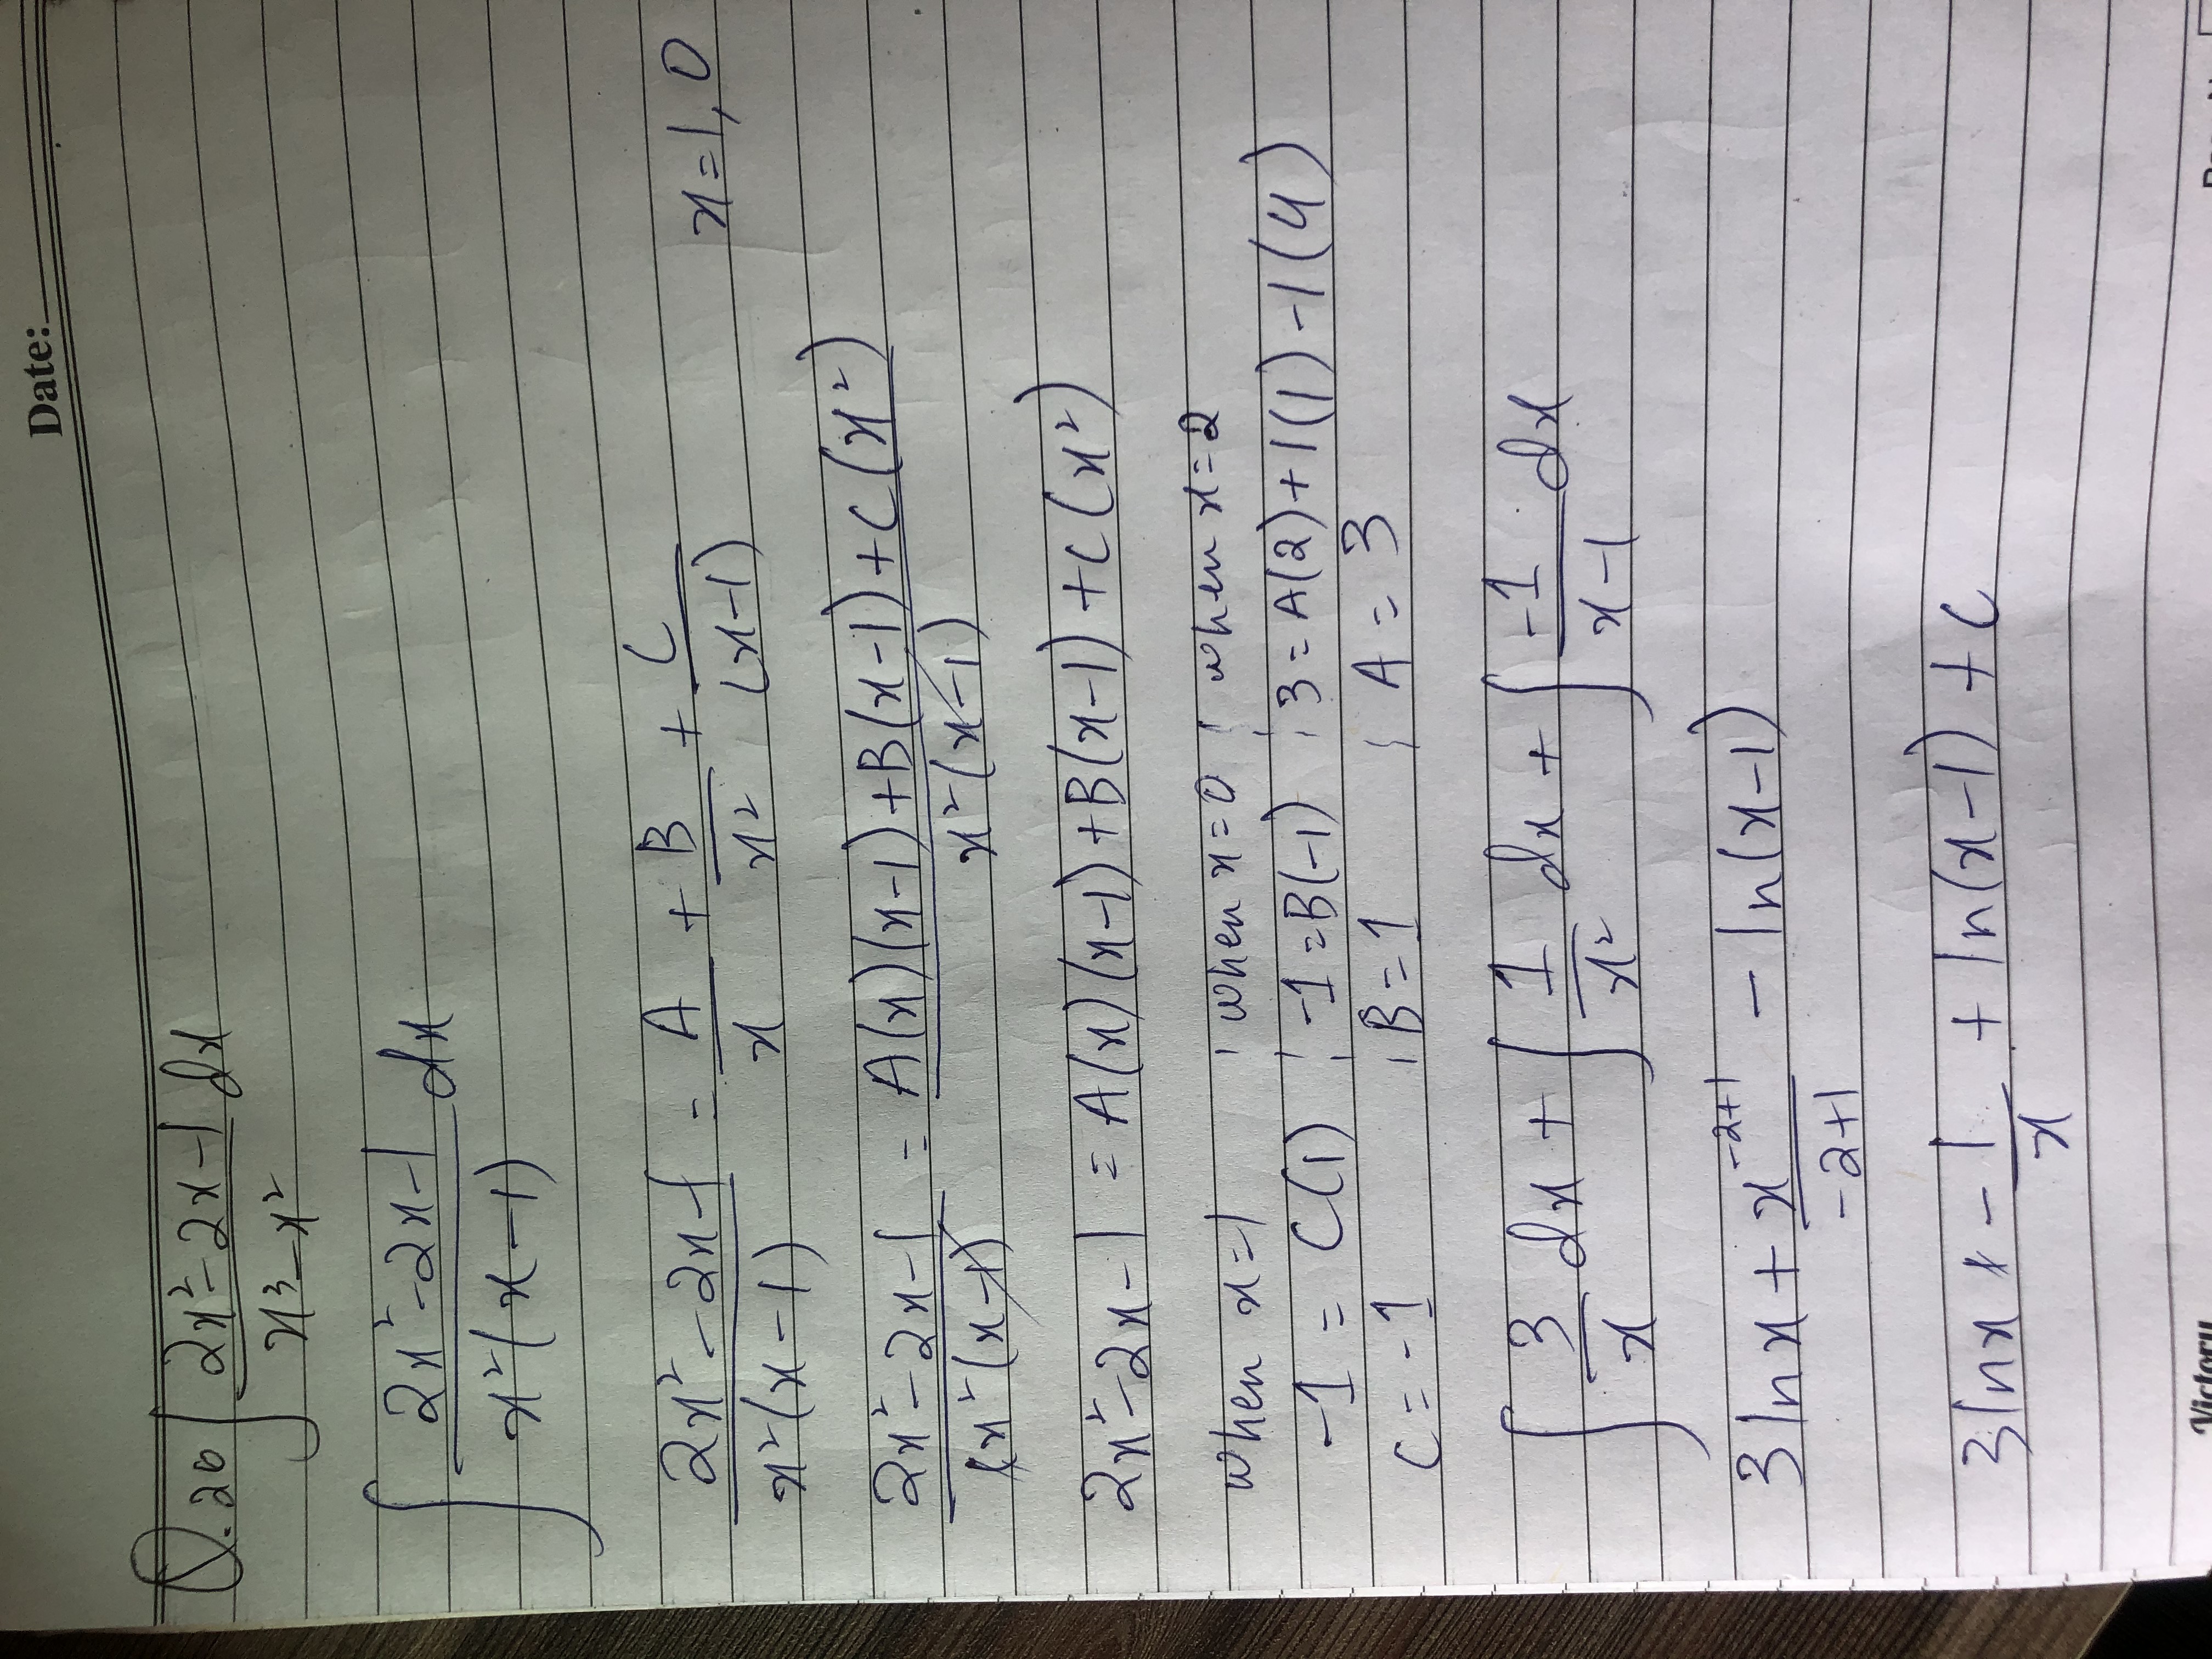 Date:
Q.20 ∫ (2x²-2x-1)/(x³-x²) dx
∫ (2x²-2x-1)/(x²(x-1)) dx
(2x²-2x-1)/(x²(x-1)) = A/x + B/x² + C/(x-1) x=1,0
(2x²-2x-1)/(x²(x-1)) = (A(x)(x-1)+B(x-1)+C(x²))/(x²(x-1))
2x²-2x-1 = A(x)(x-1)+B(x-1)+C(x²)
when x=1 ; when x=0 ; when x=2
-1 = C(1) ; -1=B(-1) ; 3=A(2)+1(1)-1(4)
C=-1 ; B=1 ; A=3
∫ 3/x dx + ∫ 1/x² dx + ∫ -1/(x-1) dx
3lnx + x^(-2+1)/(-2+1) - ln(x-1)
3lnx + -1/x + ln(x-1) + C
Victory